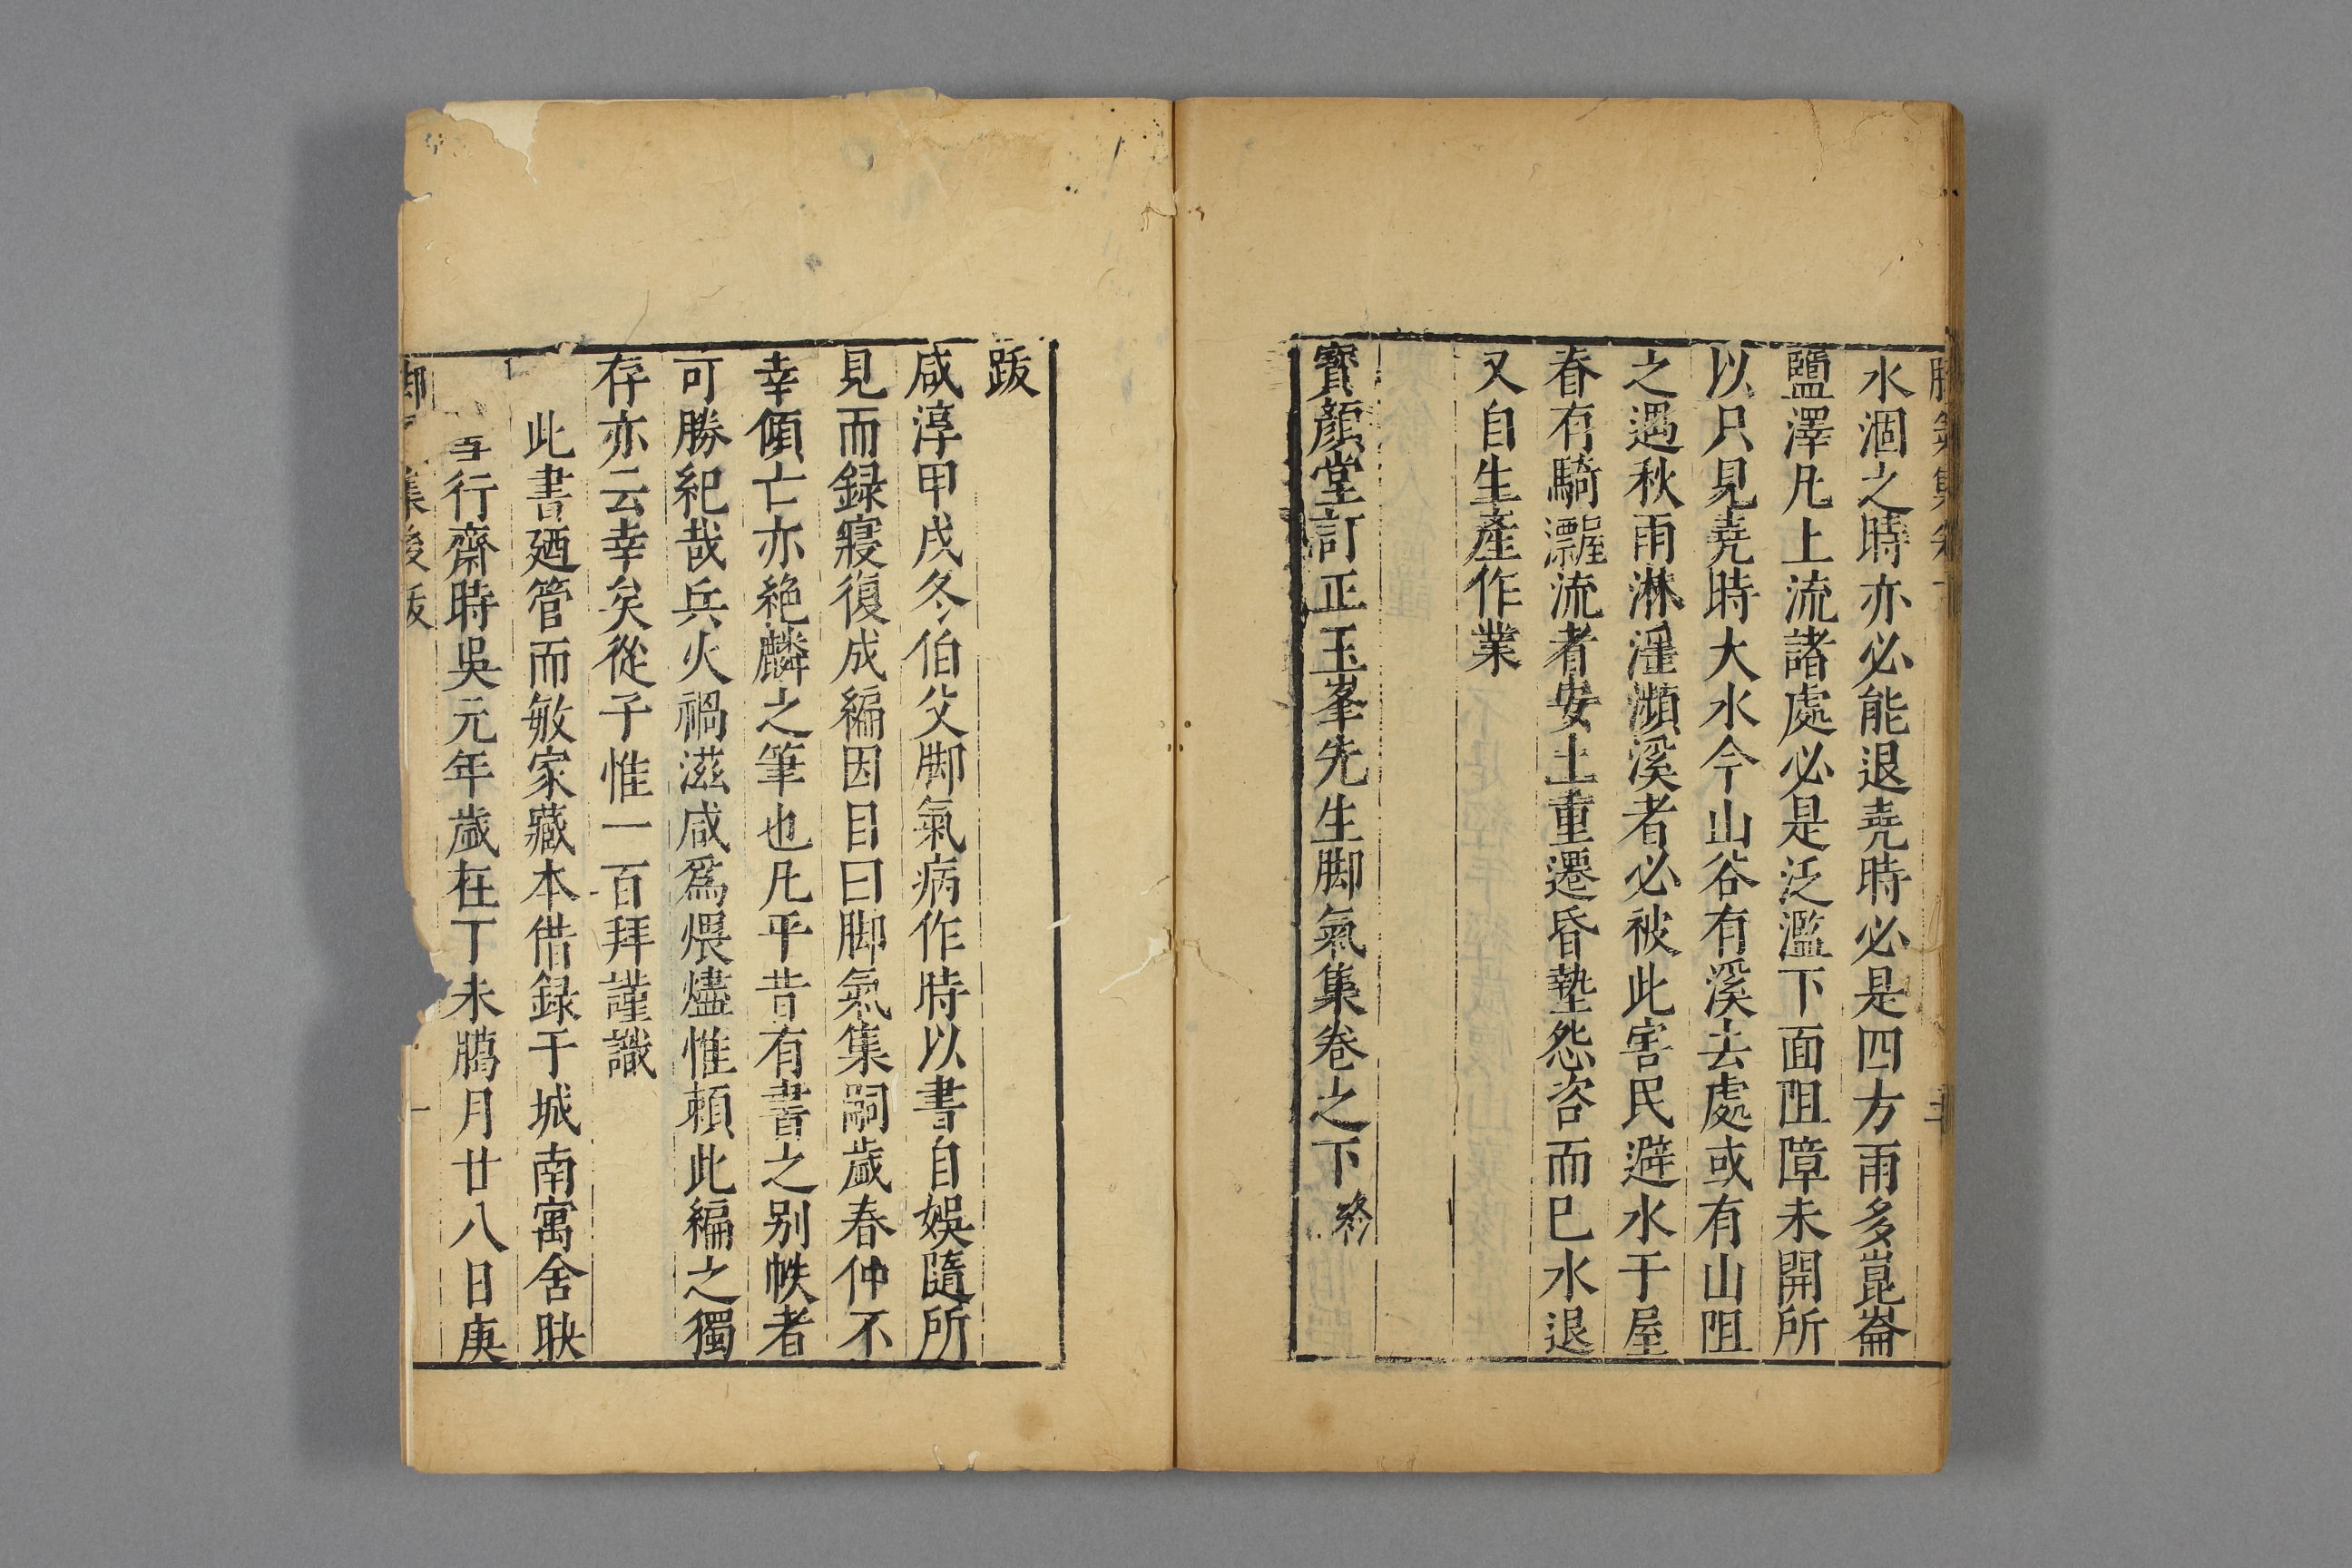 水涸之時亦必能退堯時必是四方雨多崑崙
鹽澤凡上流諸處必是泛濫下面阻障未開所
以只見堯時大水今山谷有溪去處或有山阻
之遇秋雨淋淫瀕溪者必被此害民避水于屋
春有騎漂屋流者安土重遷昏墊怨咨而已水退
又自生產作業
寶顏堂訂正玉峯先生脚氣集卷之下 終
跋
咸淳甲戌冬伯父脚氣病作時以書自娛隨所
見而録寢復成編因目曰脚氣集嗣歲春仲不
幸傾亡亦絶麟之筆也凡平昔有書之别帙者
可勝紀哉兵火禍滋咸爲煨燼惟頼此編之獨
存亦云幸矣從子惟一百拜謹識
此書廼管而敏家藏本借録于城南寓舍映
雪行齋時吳元年歲在丁未臈月廿八日庚
集後跋